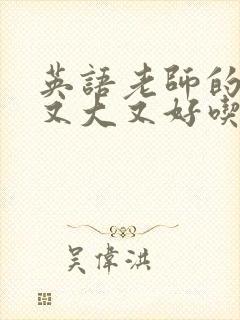 英語老師的
又大又好喫
吳偉洪